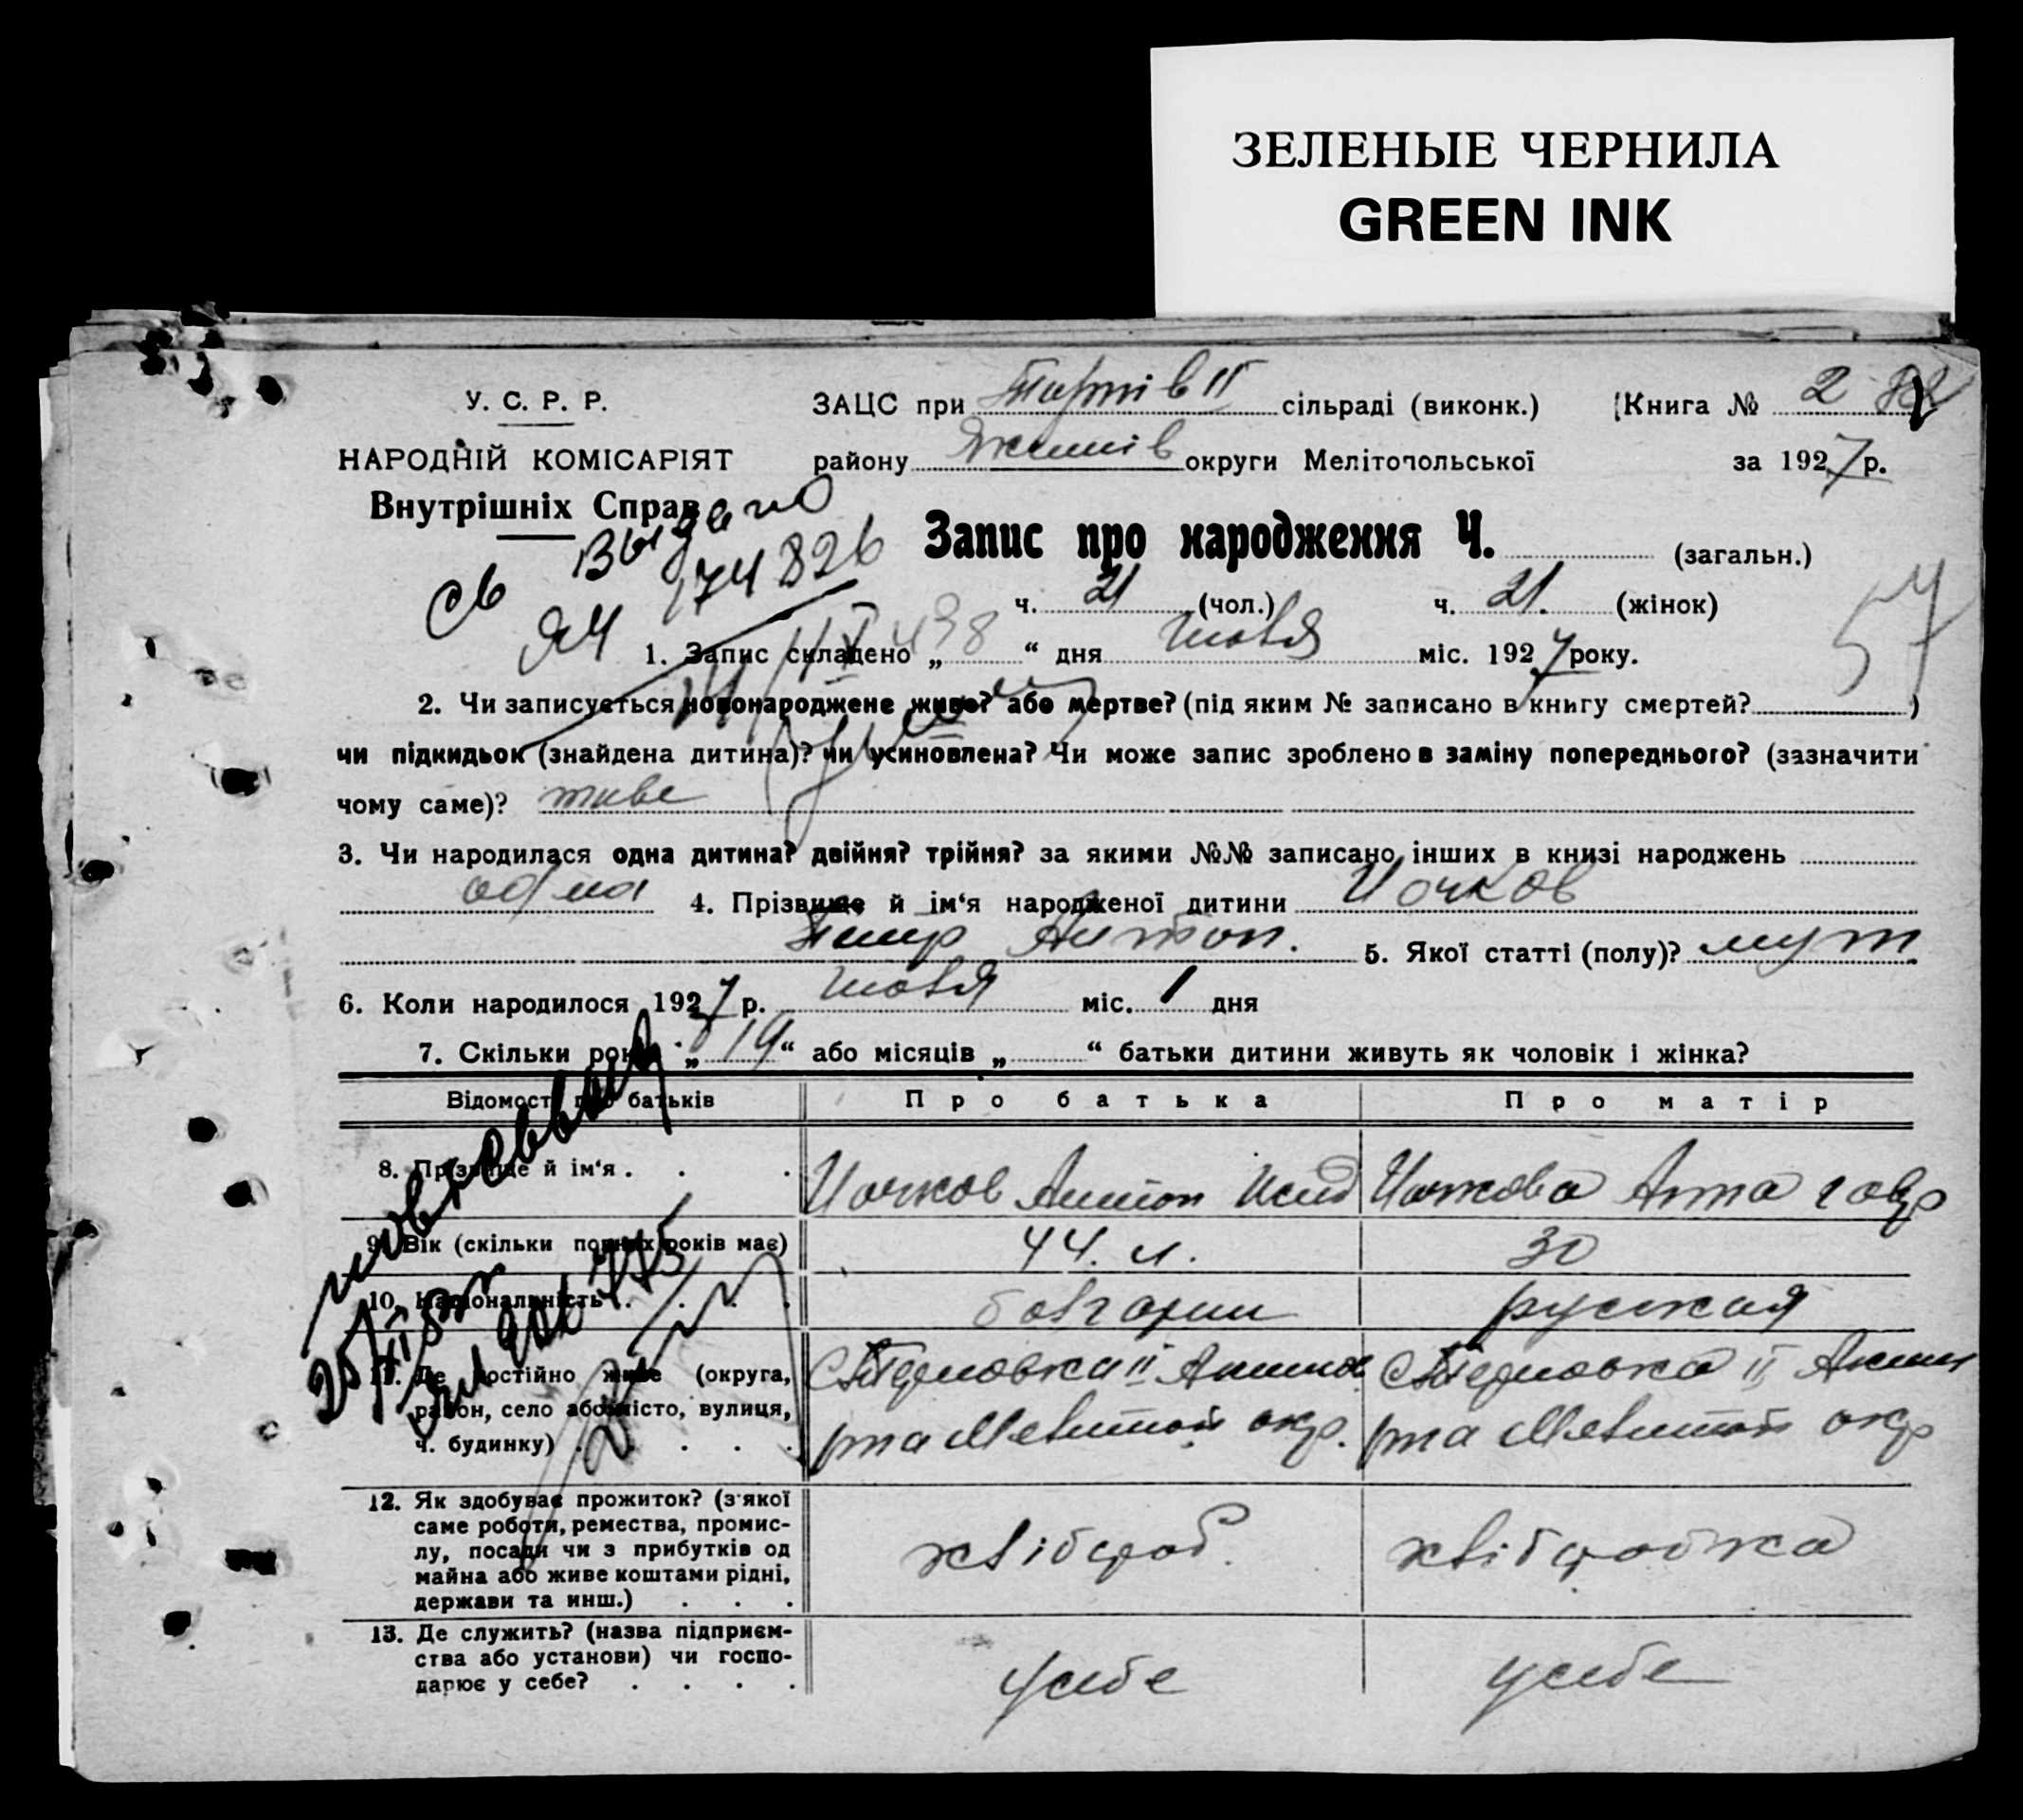 ЗЕЛЕНЫЕ ЧЕРНИЛА
GREEN INK
У. С. Р. Р.
НАРОДНІЙ КОМІСАРІЯТ
Внутрішніх Справ
ЗАЦС при сільраді (виконк.) Книга № 2
району округи Мелітопольської за 1927 р.
Выдано
св
ЯЧ 174826
Запис про народження Ч. (загальн.)
ч. 21 (чол.) ч. 21. (жінок)
57
1. Запис складено „ “ дня июля міс. 1927 року.
2. Чи записується новонароджене живе? або мертве? (під яким № записано в книгу смертей? )
чи підкидьок (знайдена дитина)? чи усиновлена? Чи може запис зроблено в заміну попереднього? (зазначити
чому саме)? живе
3. Чи народилася одна дитина? двійня? трійня? за якими №№ записано інших в книзі народжень
одна 4. Прізвище й ім‘я народженої дитини Иочков
Антон. 5. Якої статті (полу)? муж
6. Коли народилося 1927 р. июля міс. 1 дня
7. Скільки років „ 19 “ або місяців „ “ батьки дитини живуть як чоловік і жінка?
Відомості про батьків Про батька Про матір
8. Прізвище й ім‘я . . . Иочков Антон Исид Иочкова Анна Гавр
9. Вік (скільки повних років має) 44. л. 30
10. Національність . . . . болгарин русская
11. Де постійно живе (округа,
район, село або місто, вулиця,
ч. будинку) . . . . .
С Терновка II Акимов С Терновка II Аким
р-на Мелитоп окр. р-на Мелитоп окр
12. Як здобуває прожиток? (з якої
саме роботи, ремества, промис-
лу, посади чи з прибутків од
майна або живе коштами рідні,
держави та инш.) . . .
хлібороб. хліборобка
13. Де служить? (назва підприєм-
ства або установи) чи госпо-
дарює у себе? . . . .
у себе у себе